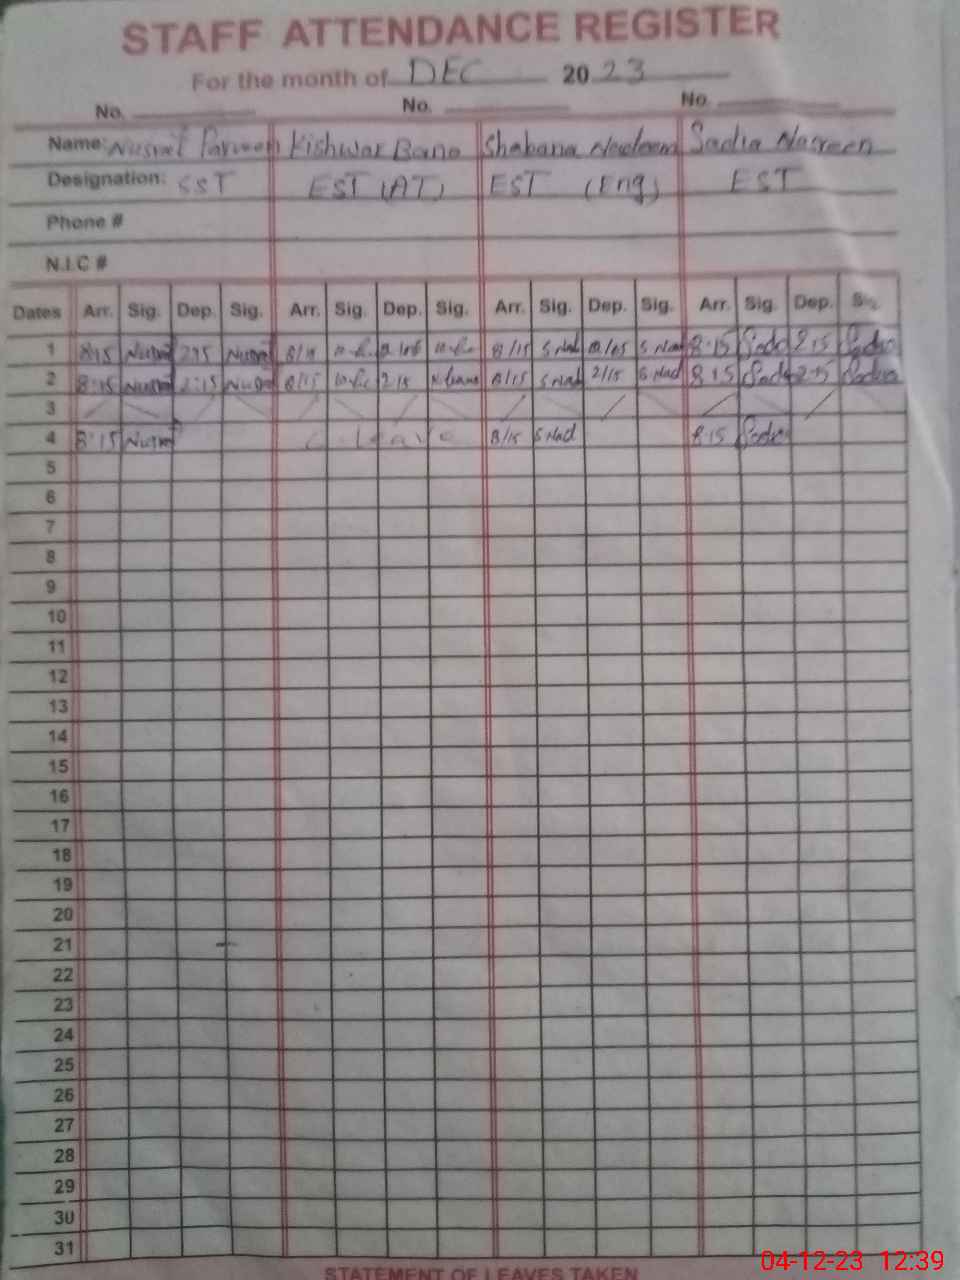 STAFF ATTENDANCE REGISTER
For the month of DEC 2023
No. No. No.
Name: Nusrat Parveen Kishwar Bano Shabana Nadeem Sadia Nasreen
Designation: SST EST (AT) EST (Eng) EST
Phone #
N.I.C #
Dates Arr. Sig. Dep. Sig. Arr. Sig. Dep. Sig. Arr. Sig. Dep. Sig. Arr. Sig. Dep. Sig.
1 8:15 Nusrat Nusrat 8/15 8/15 S Nad S Nad 8:15 Sadia 2:15 Sadia
2 8:15 Nusrat 2:15 Nusrat 8/15 2/15 8/15 S Nad 2/15 S Nad 8:15 Sadia 2:15 Sadia
3
4 8:15 Nusrat C leave 8/15 S Nad 8:15 Sadia
5
6
7
8
9
10
11
12
13
14
15
16
17
18
19
20
21
22
23
24
25
26
27
28
29
30
31
STATEMENT OF LEAVES TAKEN
04-12-23 12:39